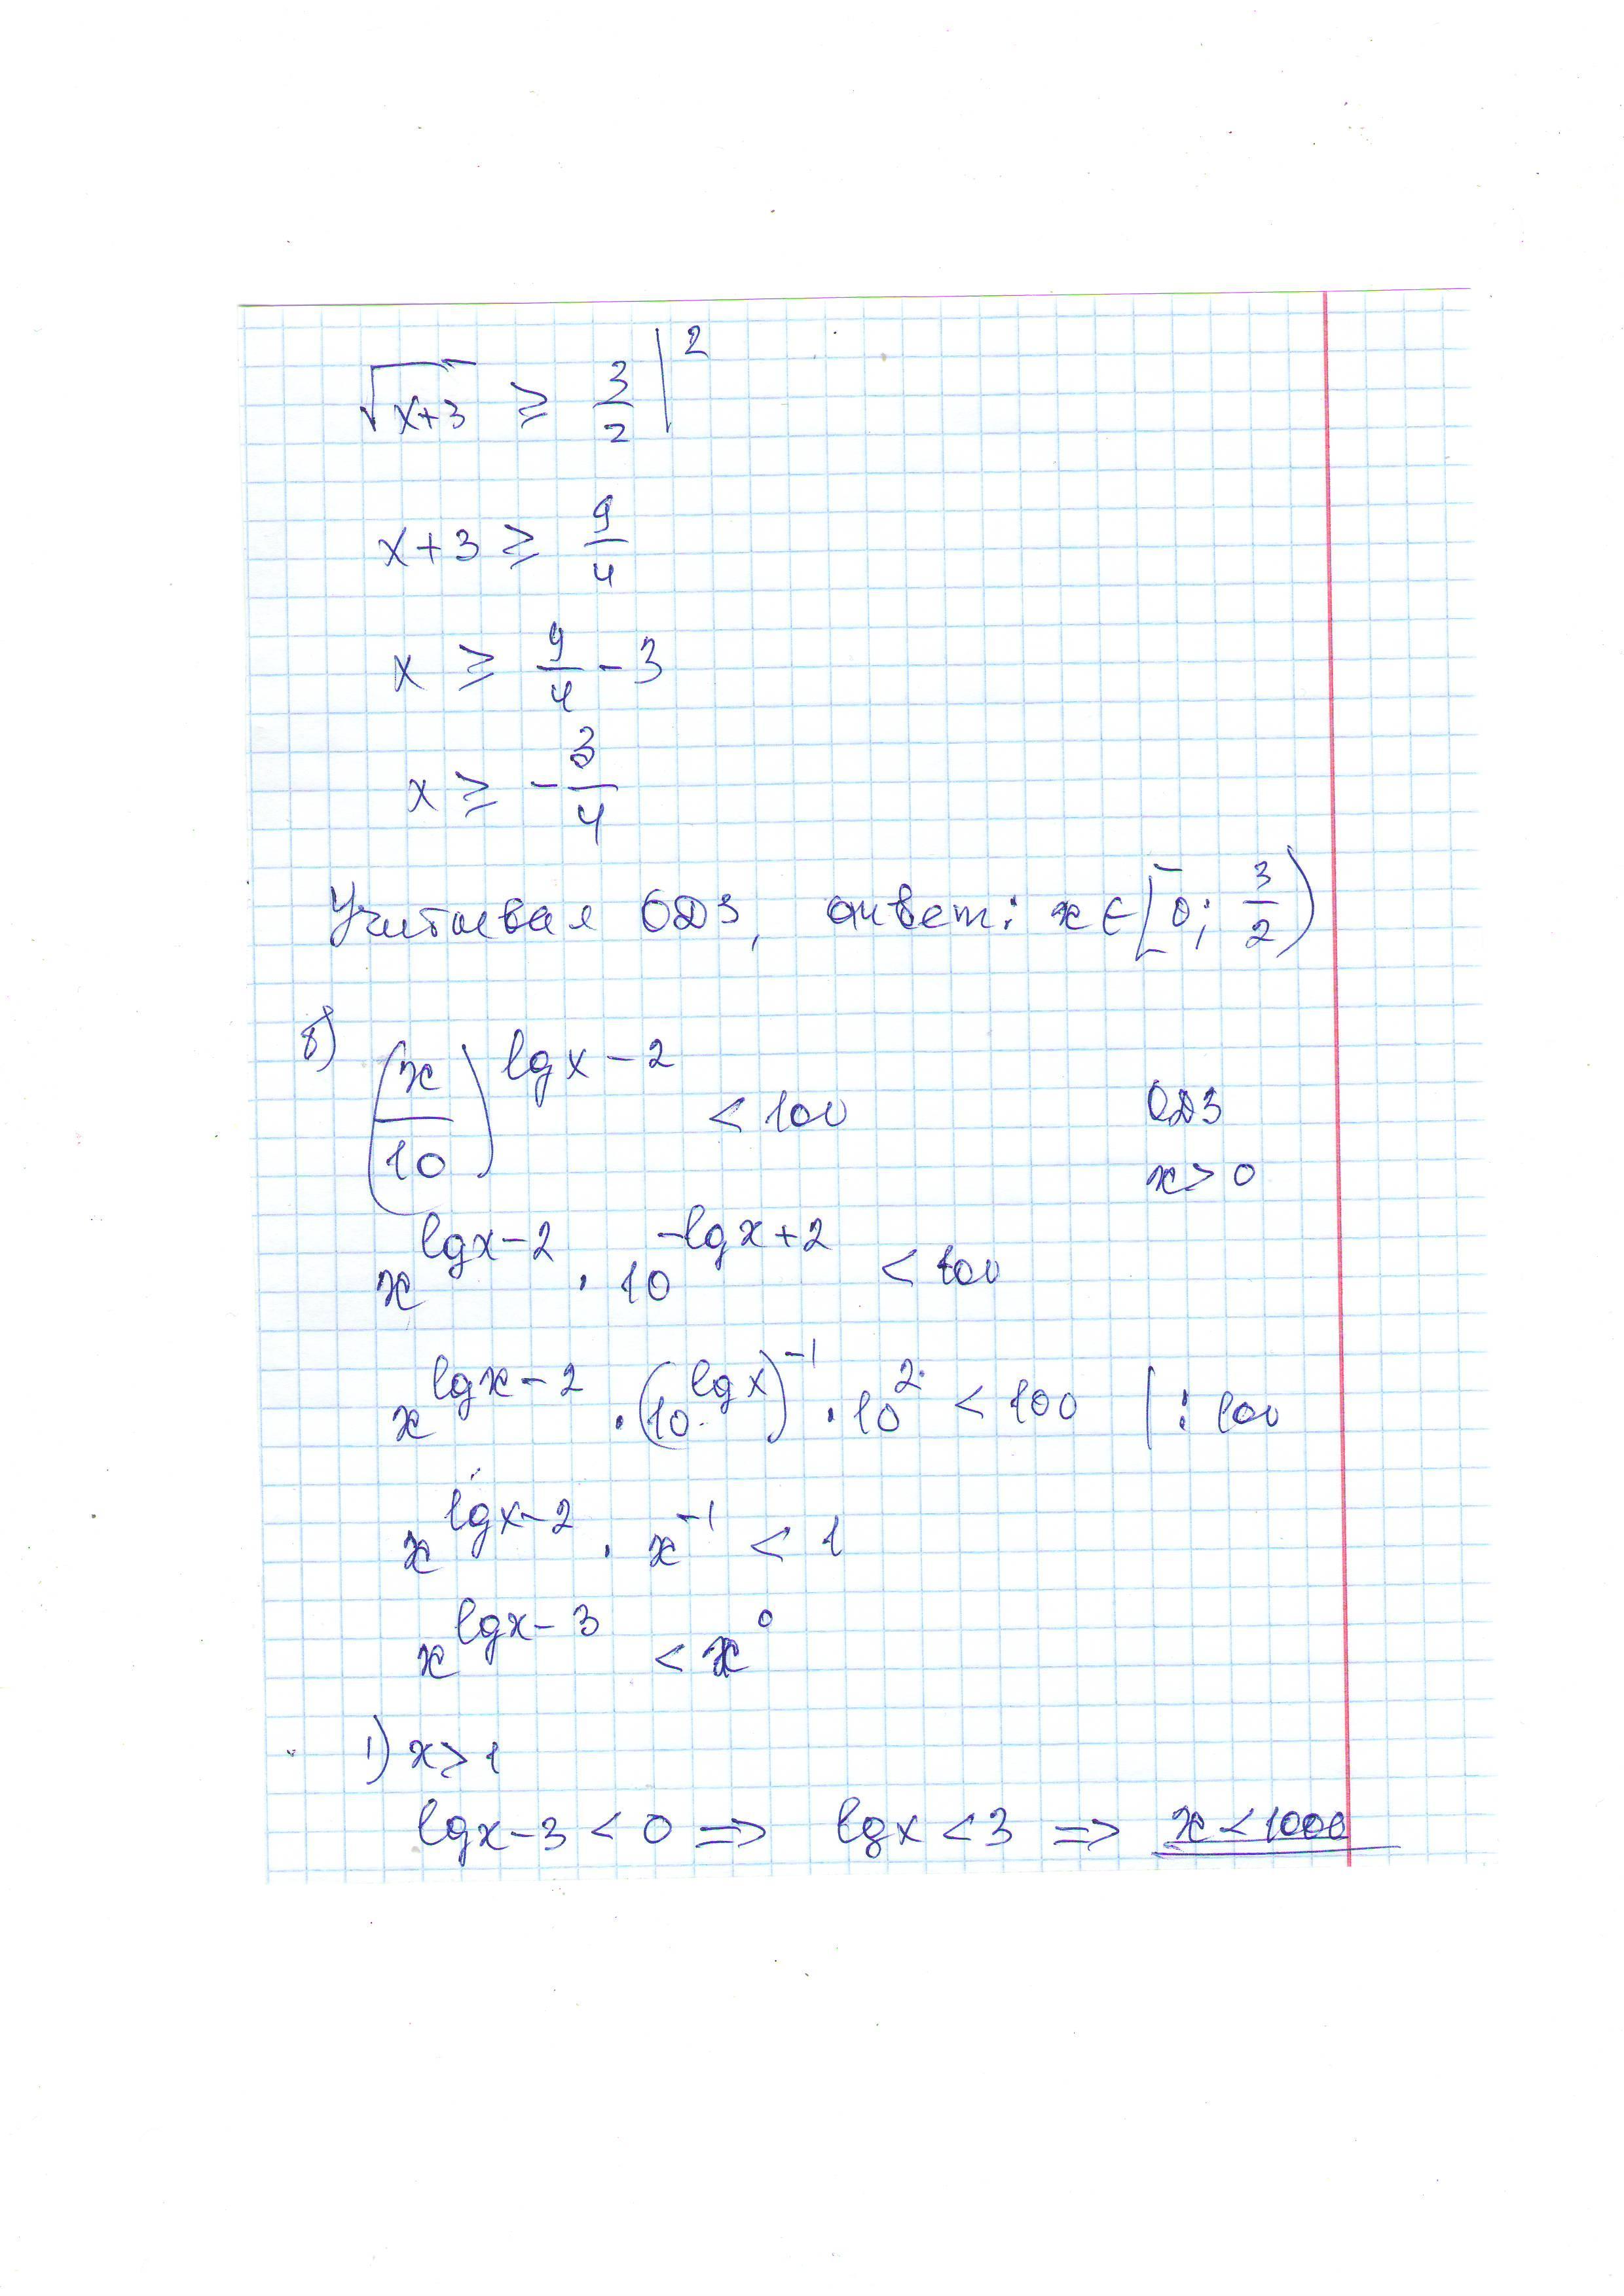 √(x+3) ≥ 3/2 |²
x+3 ≥ 9/4
x ≥ 9/4 - 3
x ≥ -3/4
Учитывая ОДЗ, ответ: x ∈ [0; 3/2)
8) (x/10)^(lgx-2) < 100 ОДЗ
x > 0
x^(lgx-2) · 10^(-lgx+2) < 100
x^(lgx-2) · (10^(lgx))^(-1) · 10^2 < 100 | : 100
x^(lgx-2) · x^(-1) < 1
x^(lgx-3) < x^0
1) x > 1
lgx-3 < 0 => lgx < 3 => x < 1000